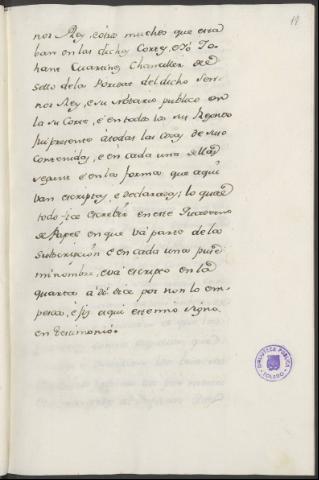 nor Rey, é otros muchos que esta
ban en las dichas Cortes, é Yo Jo
hant Martinez Chanciller del
Sello de la Poridat del dicho Sen-
nor Rey, é su notario publico en
la su Corte, é en todos los sus Regnos
fui presente á todas las cosas de suso
contenidas, é en cada una dellas
segunt é en la forma que aqui
van escriptas, é declaradas; lo qual
todo fice escrebir en este Quaderno
de Papel en que vá parte de la
subscripcion é en cada una puse
mi nombre, é vá escripto en la
quarta á dó dice por non lo em-
pesca, é fiz aqui este mio signo
en testimonio.
BIBLIOTECA PUBLICA
TOLEDO